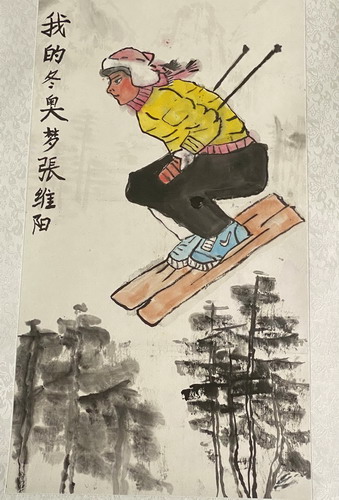 我的冬奥梦張維阳